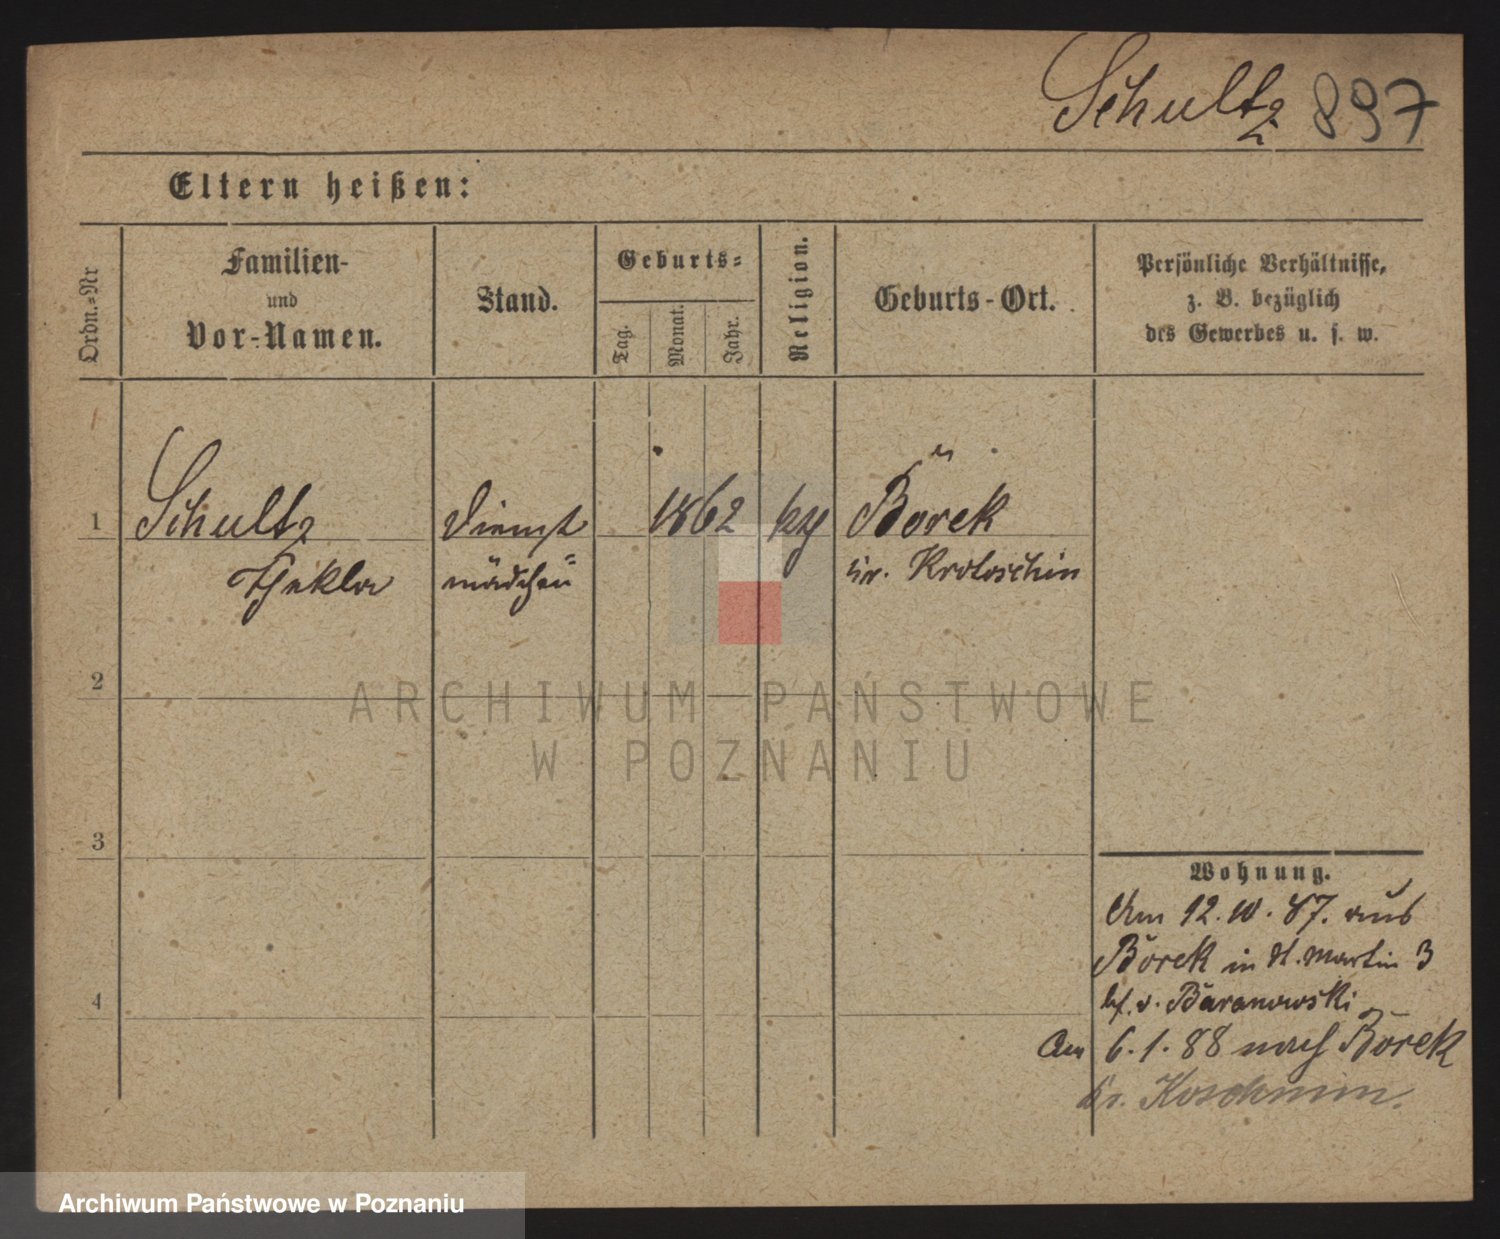 Schultz 897
Eltern heißen:
Ordn.-Nr
Familien-
und
Vor-Namen.
Stand.
Geburts-
Tag.
Monat.
Jahr.
Religion.
Geburts-Ort.
Persönliche Verhältnisse,
z. B. bezüglich
des Gewerbes u. s. w.
1 Schultz Dienst 1862 Borek
Thekla mädchen Kr. Krotoschin
2
ARCHIWUM PAŃSTWOWE
W POZNANIU
3
Wohnung.
Am 12.10.87. aus
Borek in St. Martin 3
bf. v. Baranowski
4
Am 6.1.88 nach Borek
Kr. Koschmin.
Archiwum Państwowe w Poznaniu